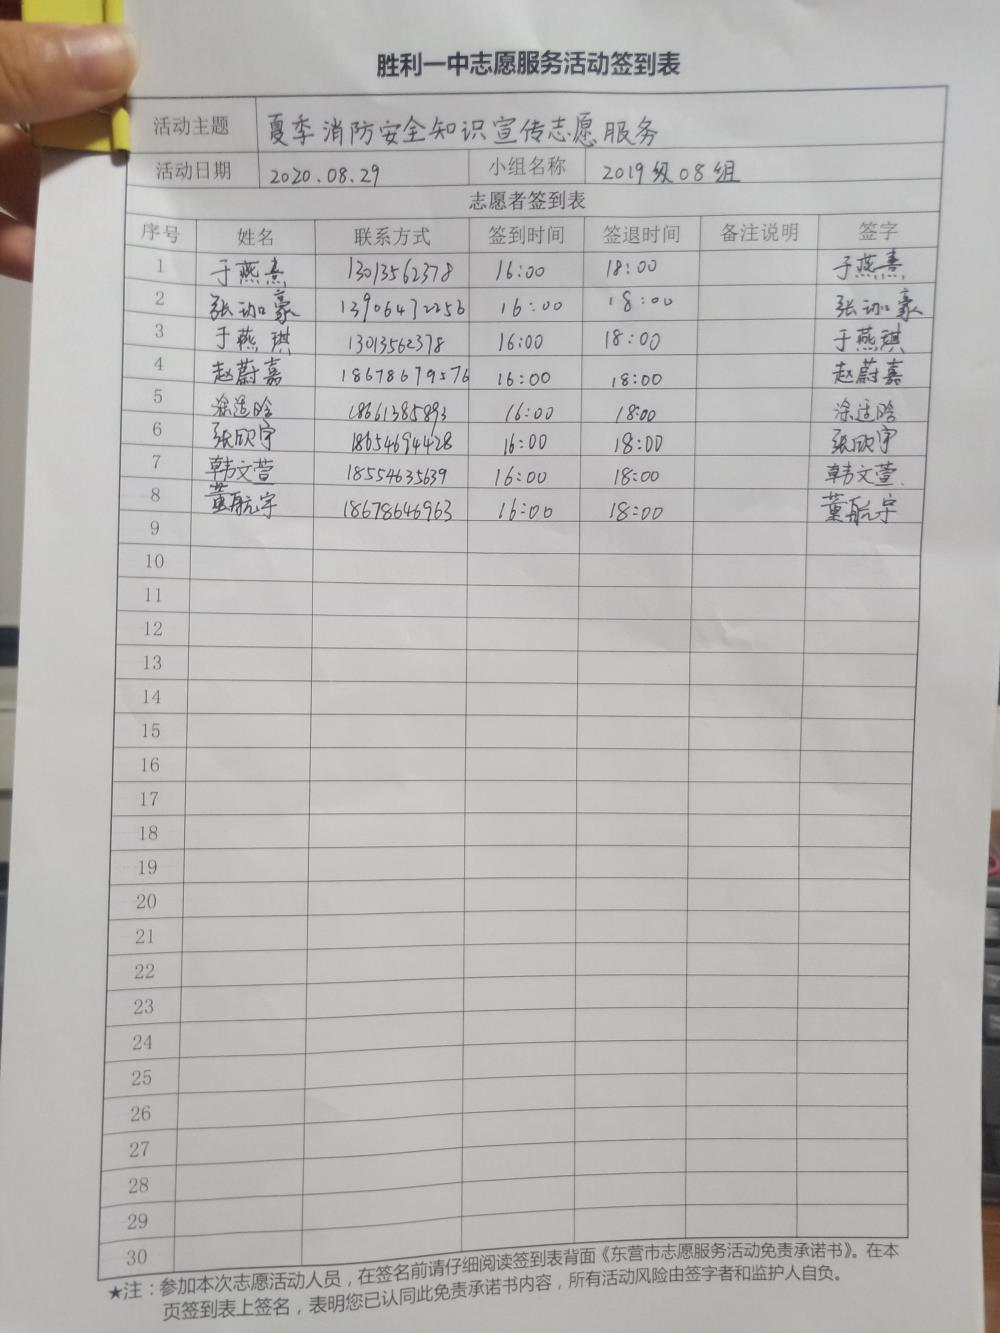 胜利一中志愿服务活动签到表
活动主题 夏季消防安全知识宣传志愿服务
活动日期 2020.08.29 小组名称 2019级08组
志愿者签到表
序号 姓名 联系方式 签到时间 签退时间 备注说明 签字
1 于燕熹 13013562378 16:00 18:00 于燕熹
2 张豪 13906472256 16:00 18:00 张豪
3 于燕琪 13013562378 16:00 18:00 于燕琪
4 赵蔚嘉 18678679576 16:00 18:00 赵蔚嘉
5 涂适晗 18661385893 16:00 18:00 涂适晗
6 张欣宇 18654694428 16:00 18:00 张欣宇
7 韩文萱 18554635639 16:00 18:00 韩文萱
8 董航宇 18678646963 16:00 18:00 董航宇
9
10
11
12
13
14
15
16
17
18
19
20
21
22
23
24
25
26
27
28
29
30
★注：参加本次志愿活动人员，在签名前请仔细阅读签到表背面《东营市志愿服务活动免责承诺书》。在本
页签到表上签名，表明您已认同此免责承诺书内容，所有活动风险由签字者和监护人自负。